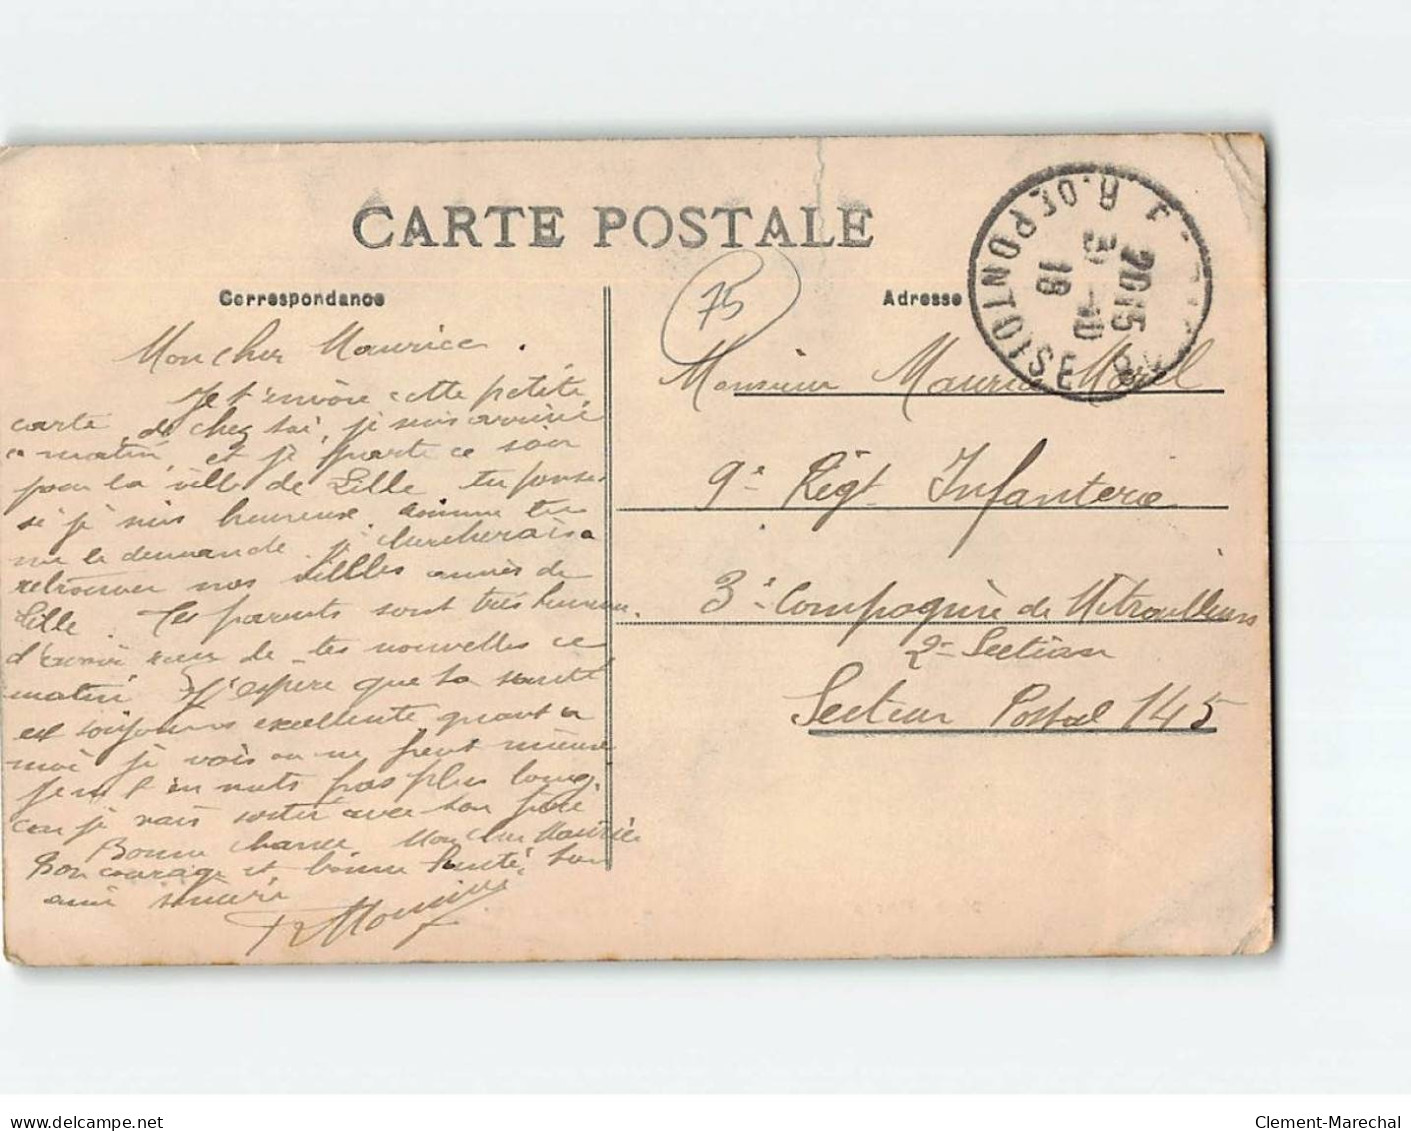 CARTE POSTALE
Correspondance
Adresse
75
R. DE PONTOISE
20 15
31 -10
18
Mon cher Maurice.
Je t'envoie cette petite
carte de chez toi, je suis arrivé
ce matin et je parts ce soir
pour la ville de Lille tu penses
si je suis heureux. comme tu
me le demande je chercherais a
retrouver nos vielles amies de
Lille. Tes parents sont très heureux
d'avoir de tes nouvelles ce
matin J'espère que ta santé
est toujours excellente, quant a
moi je vais on ne peut mieux
je ne t'en mets pas plus long
car je vais sortir avec ton père
Bonne chance Mon cher Maurice
Bon courage et bonne Santé, ton
ami sincère
Monsieur Maurice Morel
9e Régt Infanterie
3e Compagnie de Mitrailleurs
2e Section
Secteur Postal 145
delcampe.net
Clement-Marechal